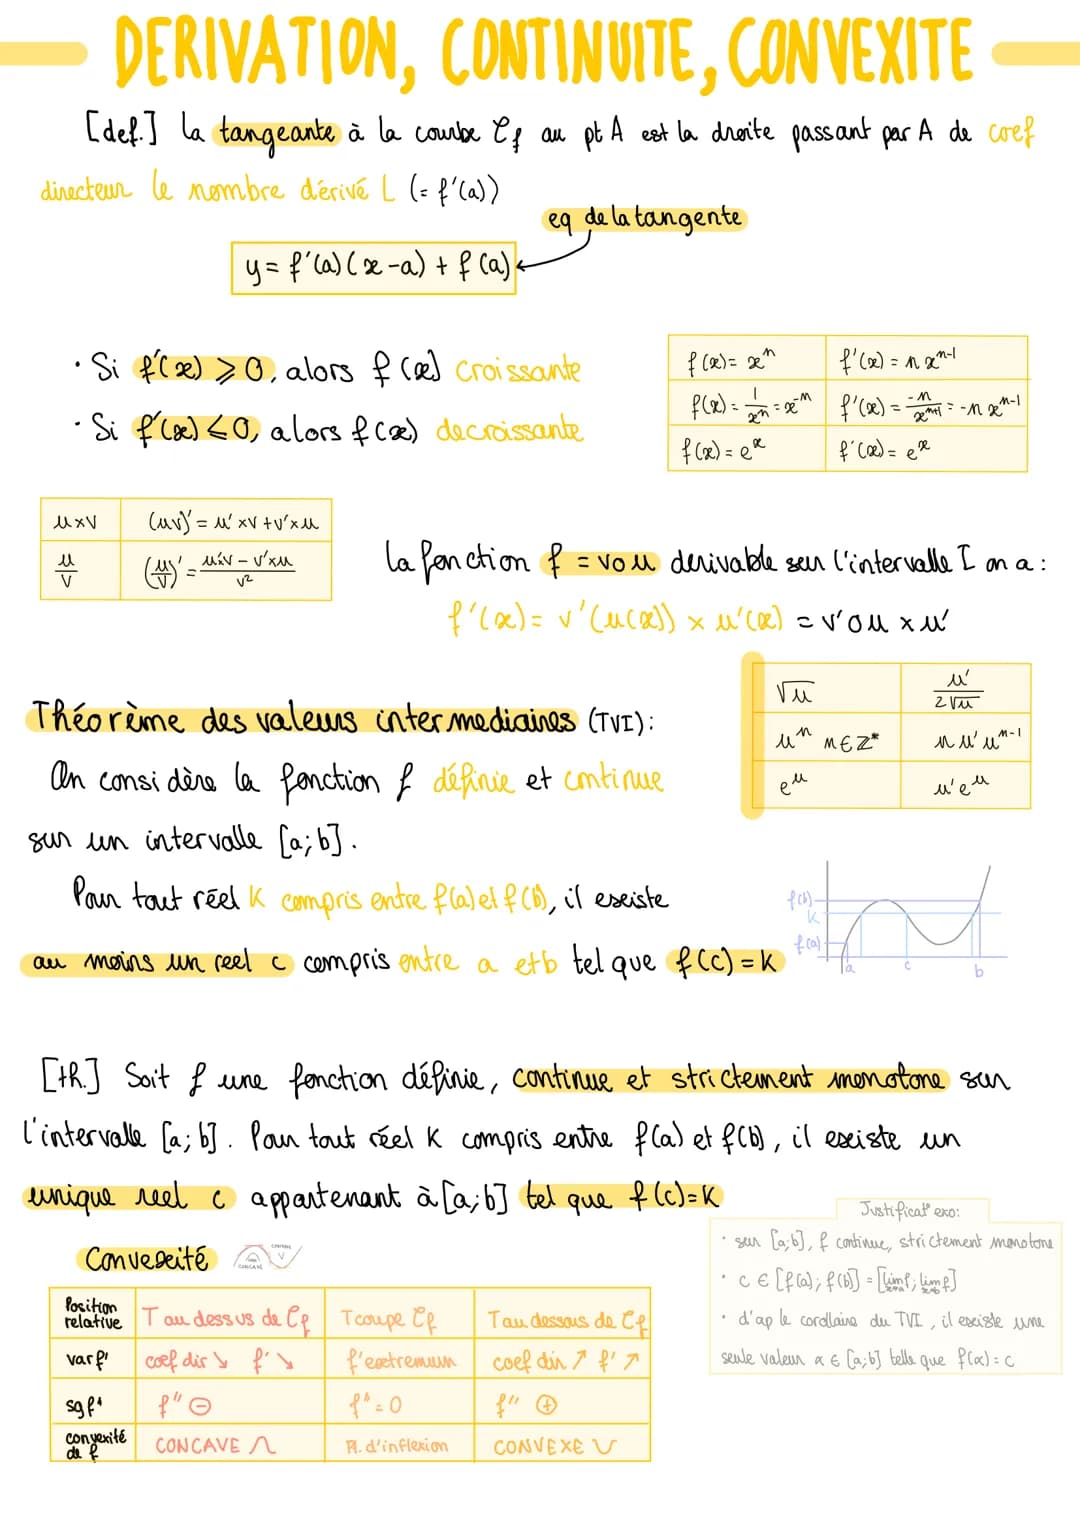 DERIVATION, CONTINUITE, CONVEXITE
[def.] la tangeante à la courbe Cf au pt A est la droite passant par A de coef
directeur le nombre dérivé L (= f'(a))
eq de la tangente
y = f'(a)(x-a) + f(a)
· Si f'(x) ⩾ 0, alors f(x) croissante
· Si f'(x) ⩽ 0, alors f(x) decroissante
f(x) = xⁿ | f'(x) = n xⁿ⁻¹
f(x) = 1/xⁿ = x⁻ⁿ | f'(x) = -n/xⁿ⁺¹ = -n xⁿ⁻¹
f(x) = eˣ | f'(x) = eˣ
u×v | (uv)' = u'×v + v'×u
u/v | (u/v)' = (u'×v - v'×u)/v²
la fonction f = v∘u derivable sur l'intervalle I on a :
f'(x) = v'(u(x)) × u'(x) = v'∘u × u'
√u | u'/2√u
uⁿ n∈Z* | n u' uⁿ⁻¹
eᵘ | u'eᵘ
Théorème des valeurs intermediaires (TVI) :
On considère la fonction f définie et continue
sur un intervalle [a;b].
Pour tout réel K compris entre f(a) et f(b), il existe
au moins un reel c compris entre a et b tel que f(c) = K
f(b)
K
f(a)
a c b
[th.] Soit f une fonction définie, continue et strictement monotone sur
l'intervalle [a;b]. Pour tout réel K compris entre f(a) et f(b), il existe un
unique reel c appartenant à [a;b] tel que f(c)=K
Convexité
CONCAVE
CONVEXE
Position relative | T au dessus de Cf | T coupe Cf | T au dessous de Cf
var f' | coef dir ↘ f' ↘ | f' extremum | coef dir ↗ f' ↗
sg f" | f" ⊖ | f" = 0 | f" ⊕
convexité de f | CONCAVE | Pt. d'inflexion | CONVEXE
Justificat° exo:
· sur [a;b], f continue, strictement monotone
· c ∈ [f(a); f(b)] = [lim f; lim f]
x→a x→b
· d'ap le corollaire du TVI, il existe une
seule valeur α ∈ [a;b] telle que f(α) = c